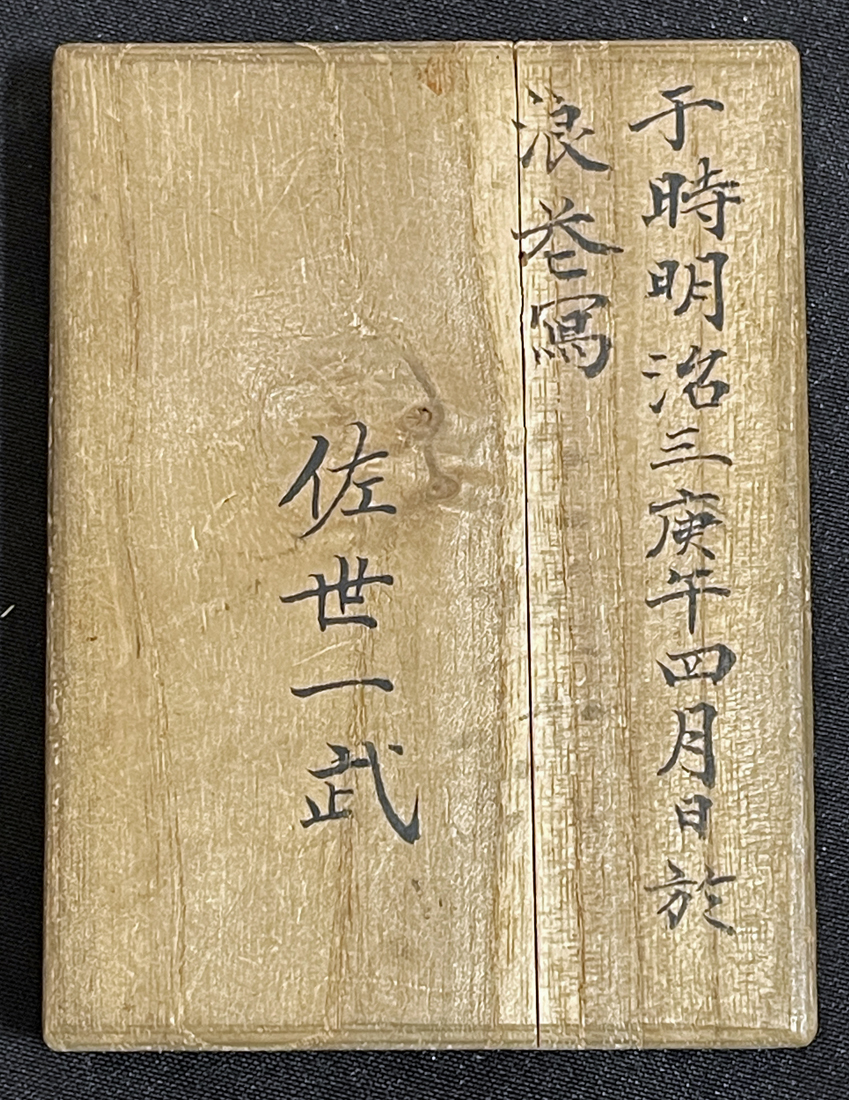 于時明治三庚午四月日於
浪華寫
佐世一武